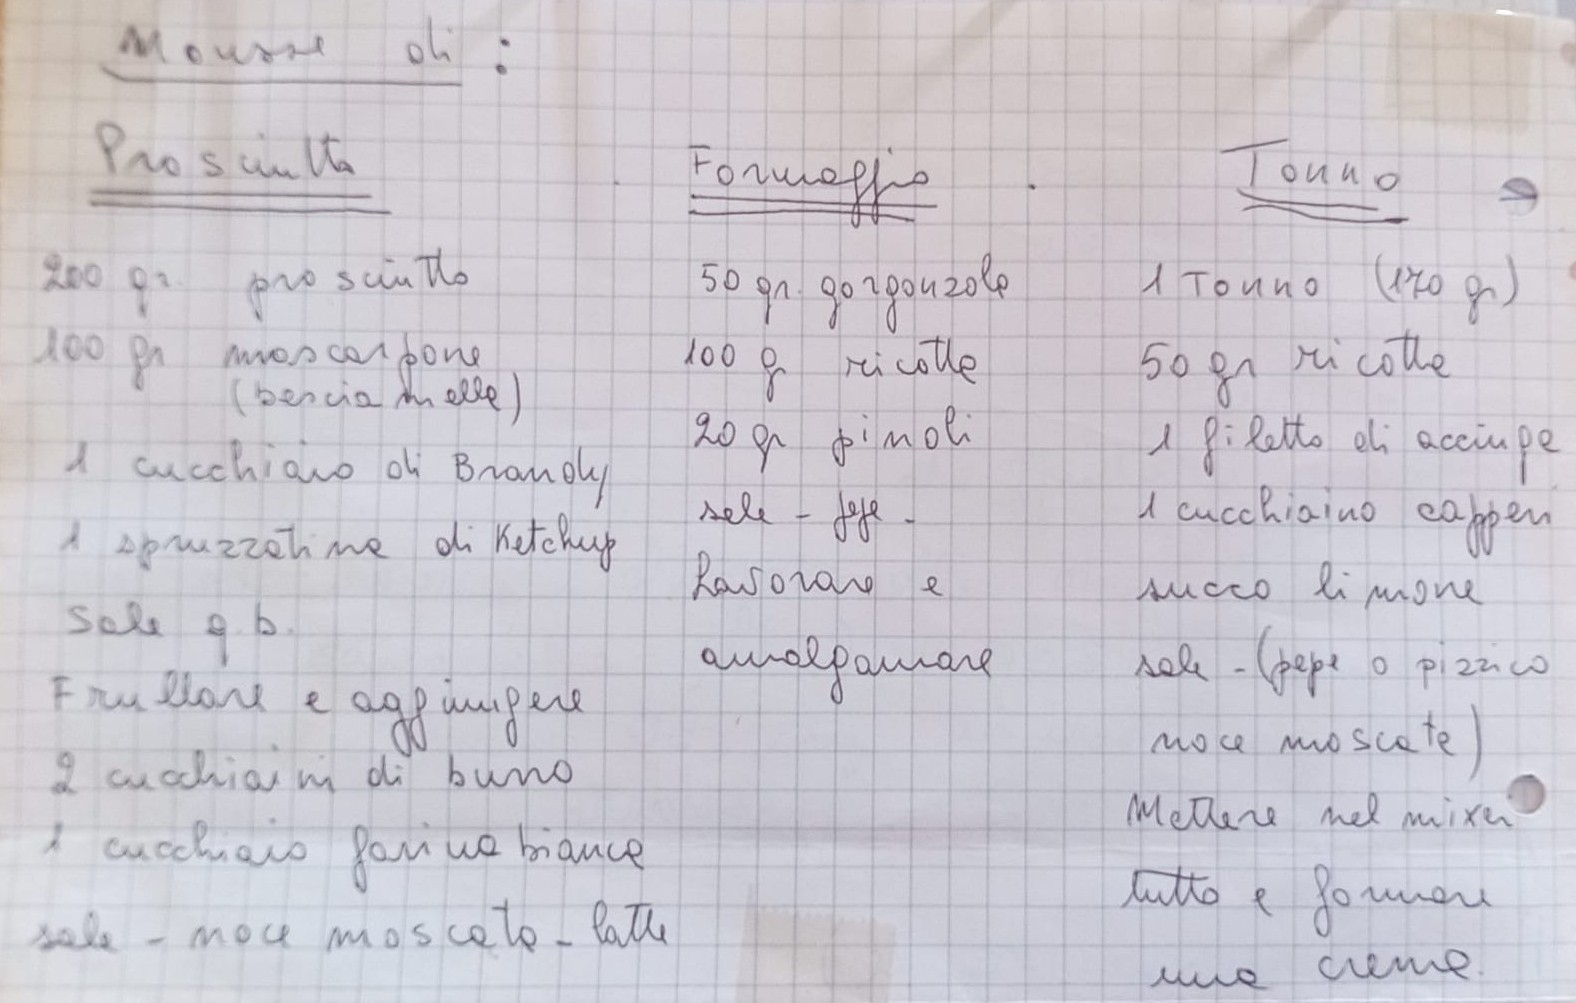 Mousse di :
Prosciutto
200 gr. prosciutto
100 gr mascarpone
(besciamella)
1 cucchiaio di Brandy
1 spruzzatina di Ketchup
Sale q.b.
Frullare e aggiungere
2 cucchiaini di burro
1 cucchiaio farina bianca
sale - noce moscata - latte
Formaggio
50 gr. gorgonzola
100 g ricotta
20 gr pinoli
sale - pepe -
Lavorare e
amalgamare
Tonno
1 Tonno (170 gr)
50 gr ricotta
1 filetto di acciuga
1 cucchiaino capperi
succo limone
sale - (pepe o pizzico
noce moscata)
Mettere nel mixer
tutto e formare
una crema.